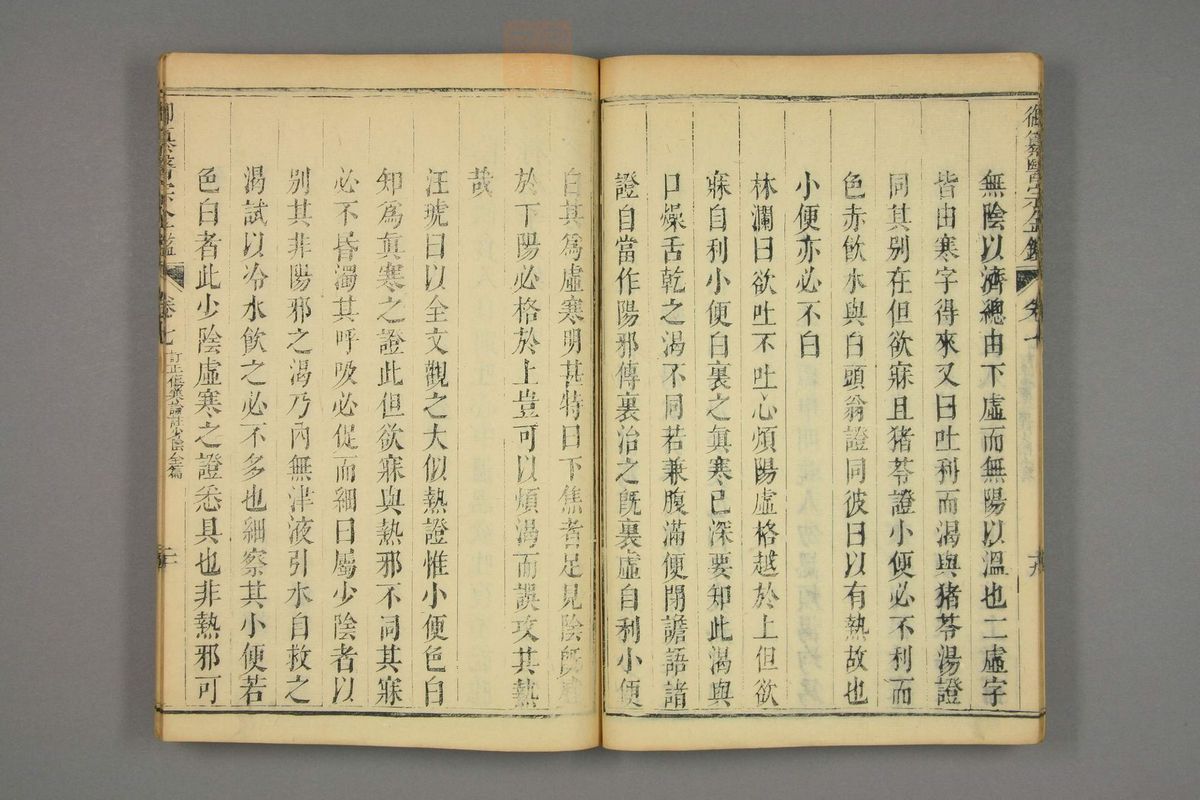 御纂醫宗金鑑
無陰以濟總由下虛而無陽以溫也二虛字
皆由寒字得來又曰吐利而渴與猪苓湯證
同其別在但欲寐且猪苓證小便必不利而
色赤飲水與白頭翁證同彼曰以有熱故也
小便亦必不白
林瀾曰欲吐不吐心煩陽虛格越於上但欲
寐自利小便白裏之眞寒已深要知此渴與
口燥舌乾之渴不同若兼腹滿便閉譫語諸
證自當作陽邪傳裏治之旣裏虛自利小便
白其爲虛寒明甚特曰下焦者足見陰旣
於下陽必格於上豈可以煩渴而誤攻其熱
哉
汪琥曰以全文觀之大似熱證惟小便色白
知爲眞寒之證此但欲寐與熱邪不同其寐
必不昏濁其呼吸必促而細曰屬少陰者以
別其非陽邪之渴乃內無津液引水自救之
渴試以冷水飲之必不多也細察其小便若
色白者此少陰虛寒之證悉具也非熱邪可
御纂醫宗金鑑 卷七 訂正傷寒論註少陰全篇